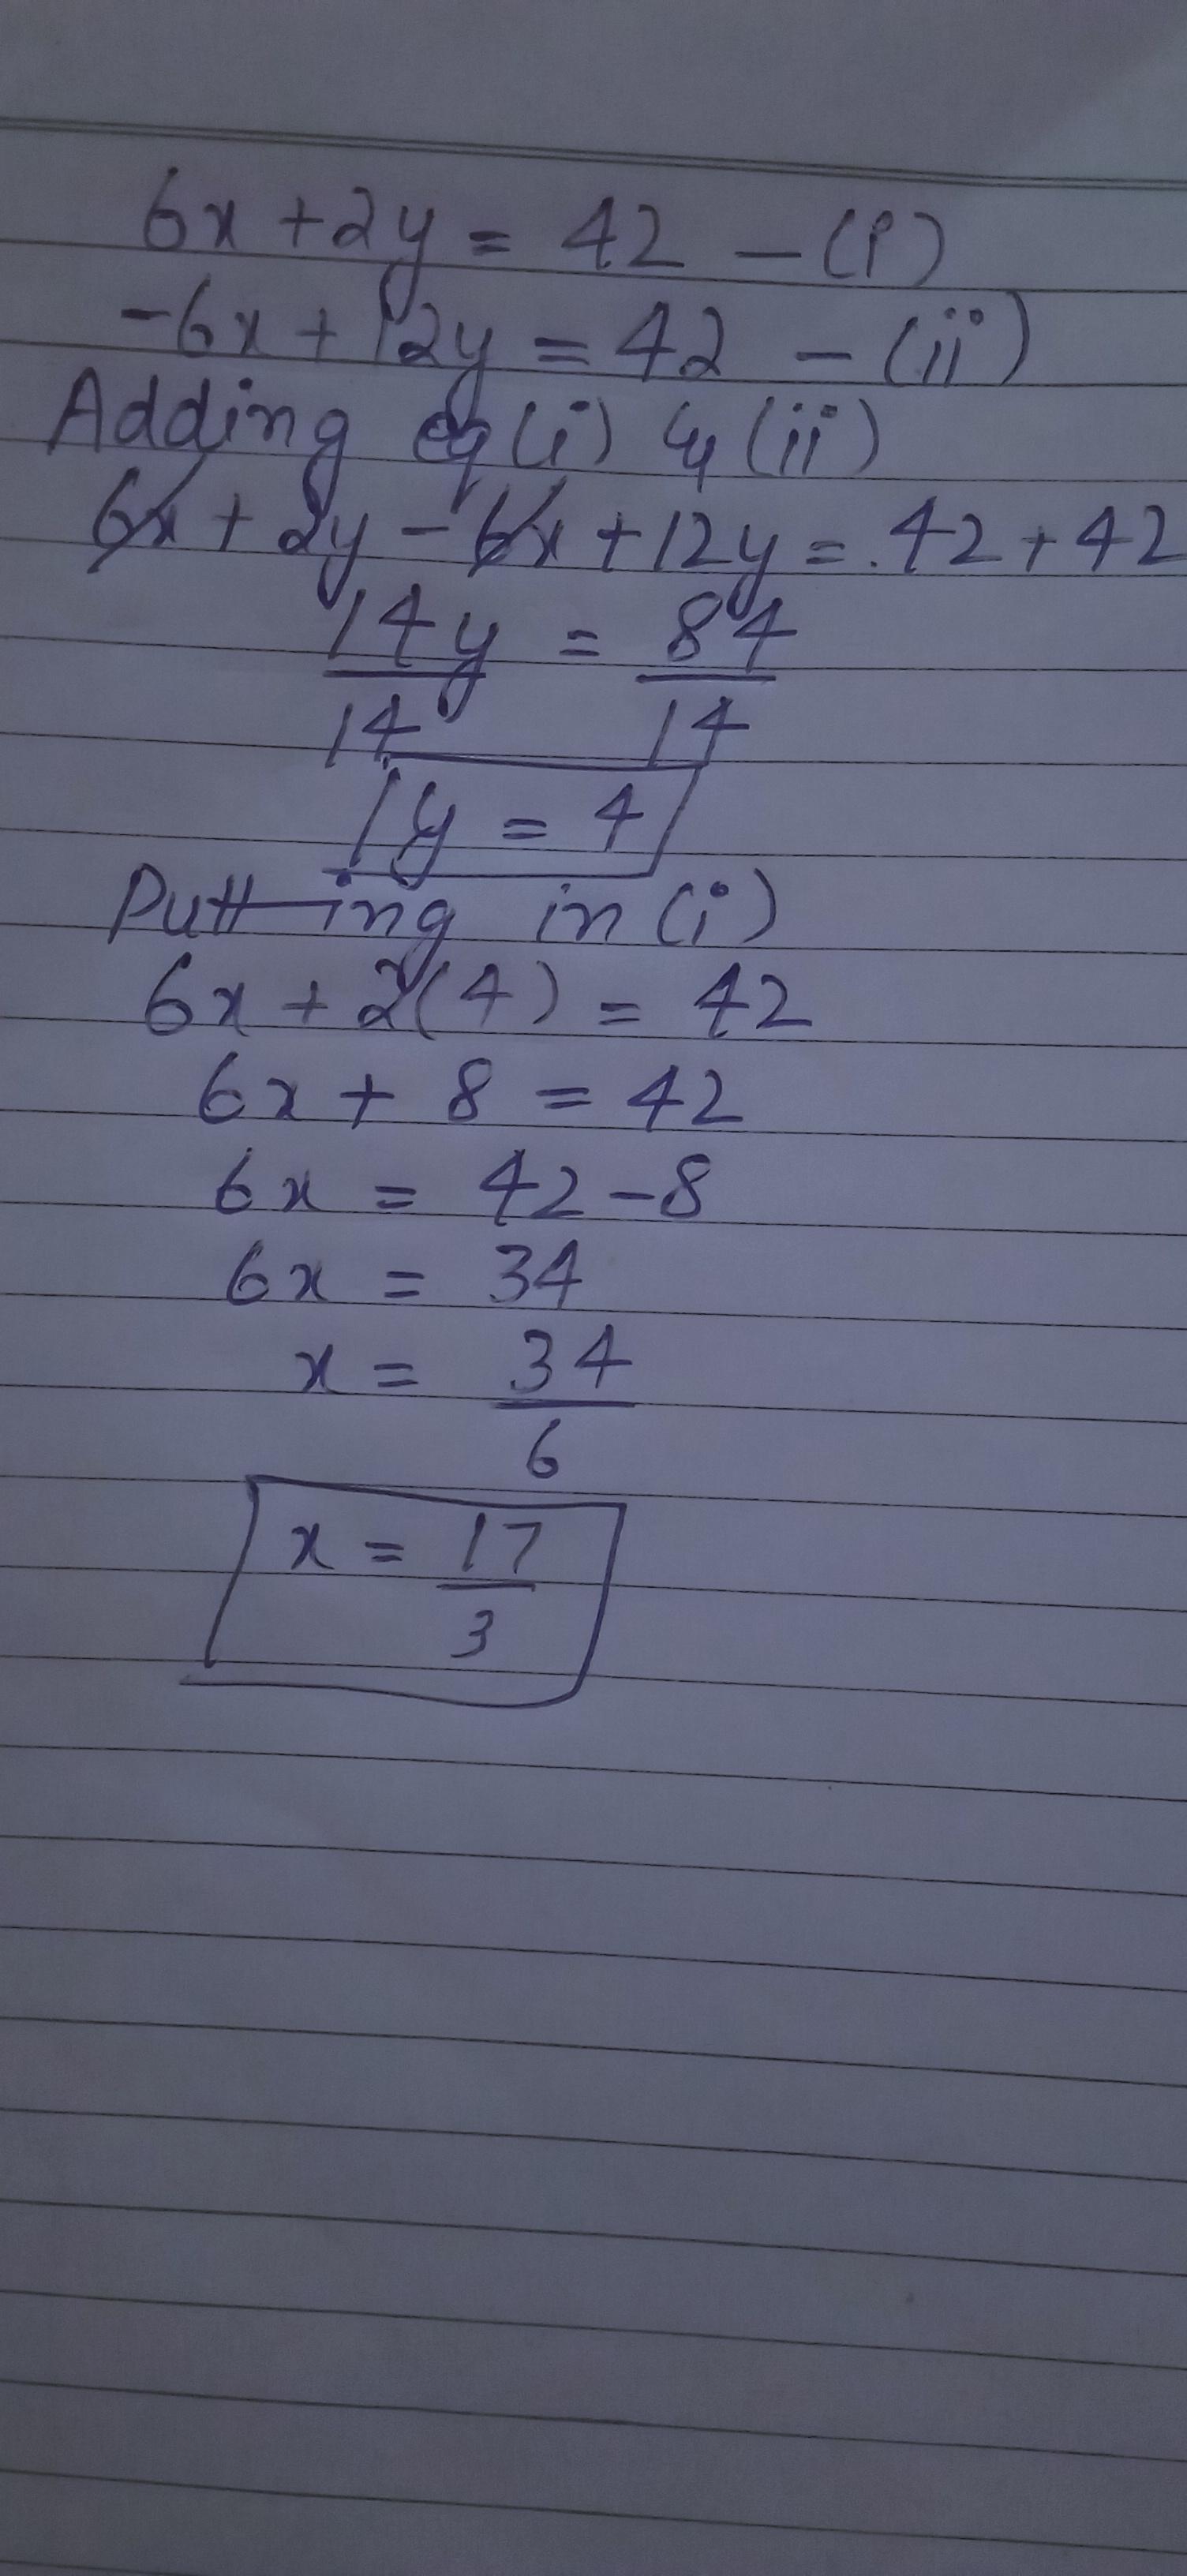 6x + 2y = 42 - (i)
-6x + 12y = 42 - (ii)
Adding eq (i) & (ii)
6x + 2y - 6x + 12y = 42 + 42
14y/14 = 84/14
y = 4
Putting in (i)
6x + 2(4) = 42
6x + 8 = 42
6x = 42 - 8
6x = 34
x = 34/6
x = 17/3